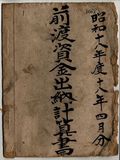 昭和十八年度十八年四月分
前渡資金出納計算書